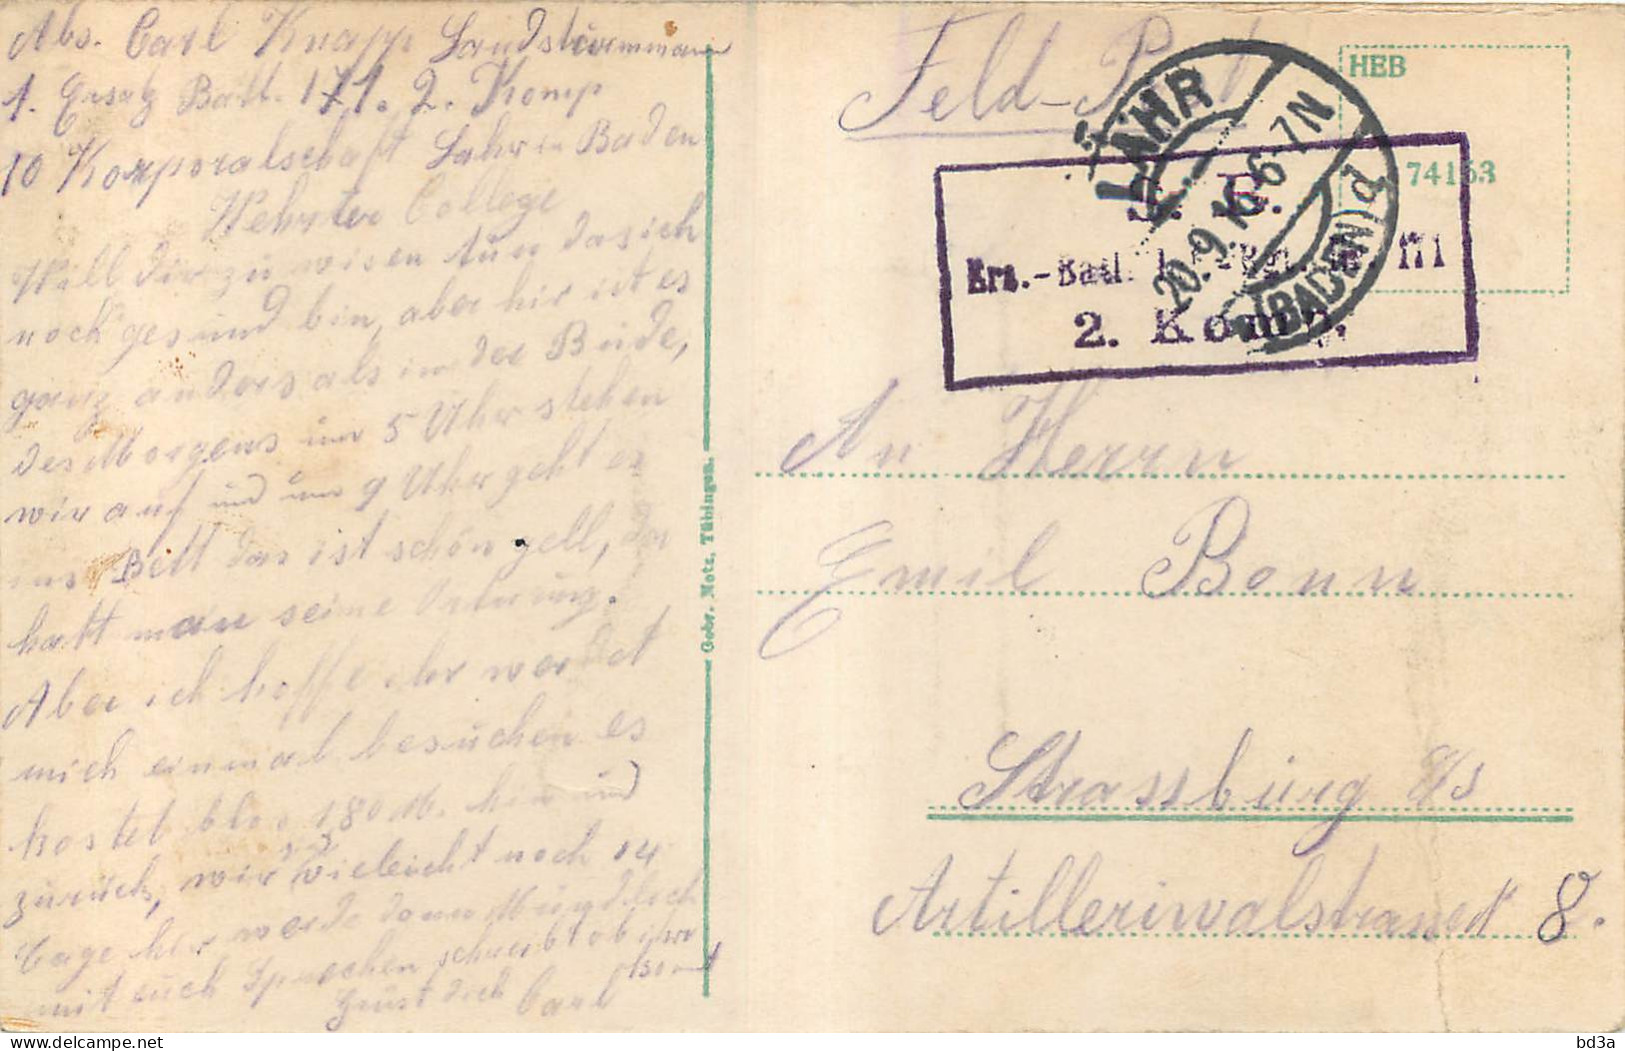 Abs. Carl Knapp Landstürmmann
1. Ersatz Batl. 171. 2. Komp
10 Korporalschaft Lahr in Baden
Wehrter College
Will dir zu wisen tun das ich
noch gesund bin, aber hir ist es
ganz anders als in der Bude,
des Morgens um 5 Uhr stehen
wir auf und um 9 Uhr geht es
ins Bett das ist schön gell, da
hatt man seine Ordnung.
Aber ich hoffe ihr werdet
mich einmal besuchen es
kostet blos 180 M. hin und
zurück, wir sind vieleicht noch 14
Tage hir werde dann Mündlich
mit euch Sprechen schreibt ob ihr
kommt
Grüst dich Carl
Gebr. Metz, Tübingen.
Feld-Post
HEB
74163
LAHR
(BADEN)
20.9.16.6-7N
S. B.
Ers.-Batl. 171
2. Komp.
An Herrn
Emil Bonn
Strassburg E/s
Artilleriwalstrasse 8.